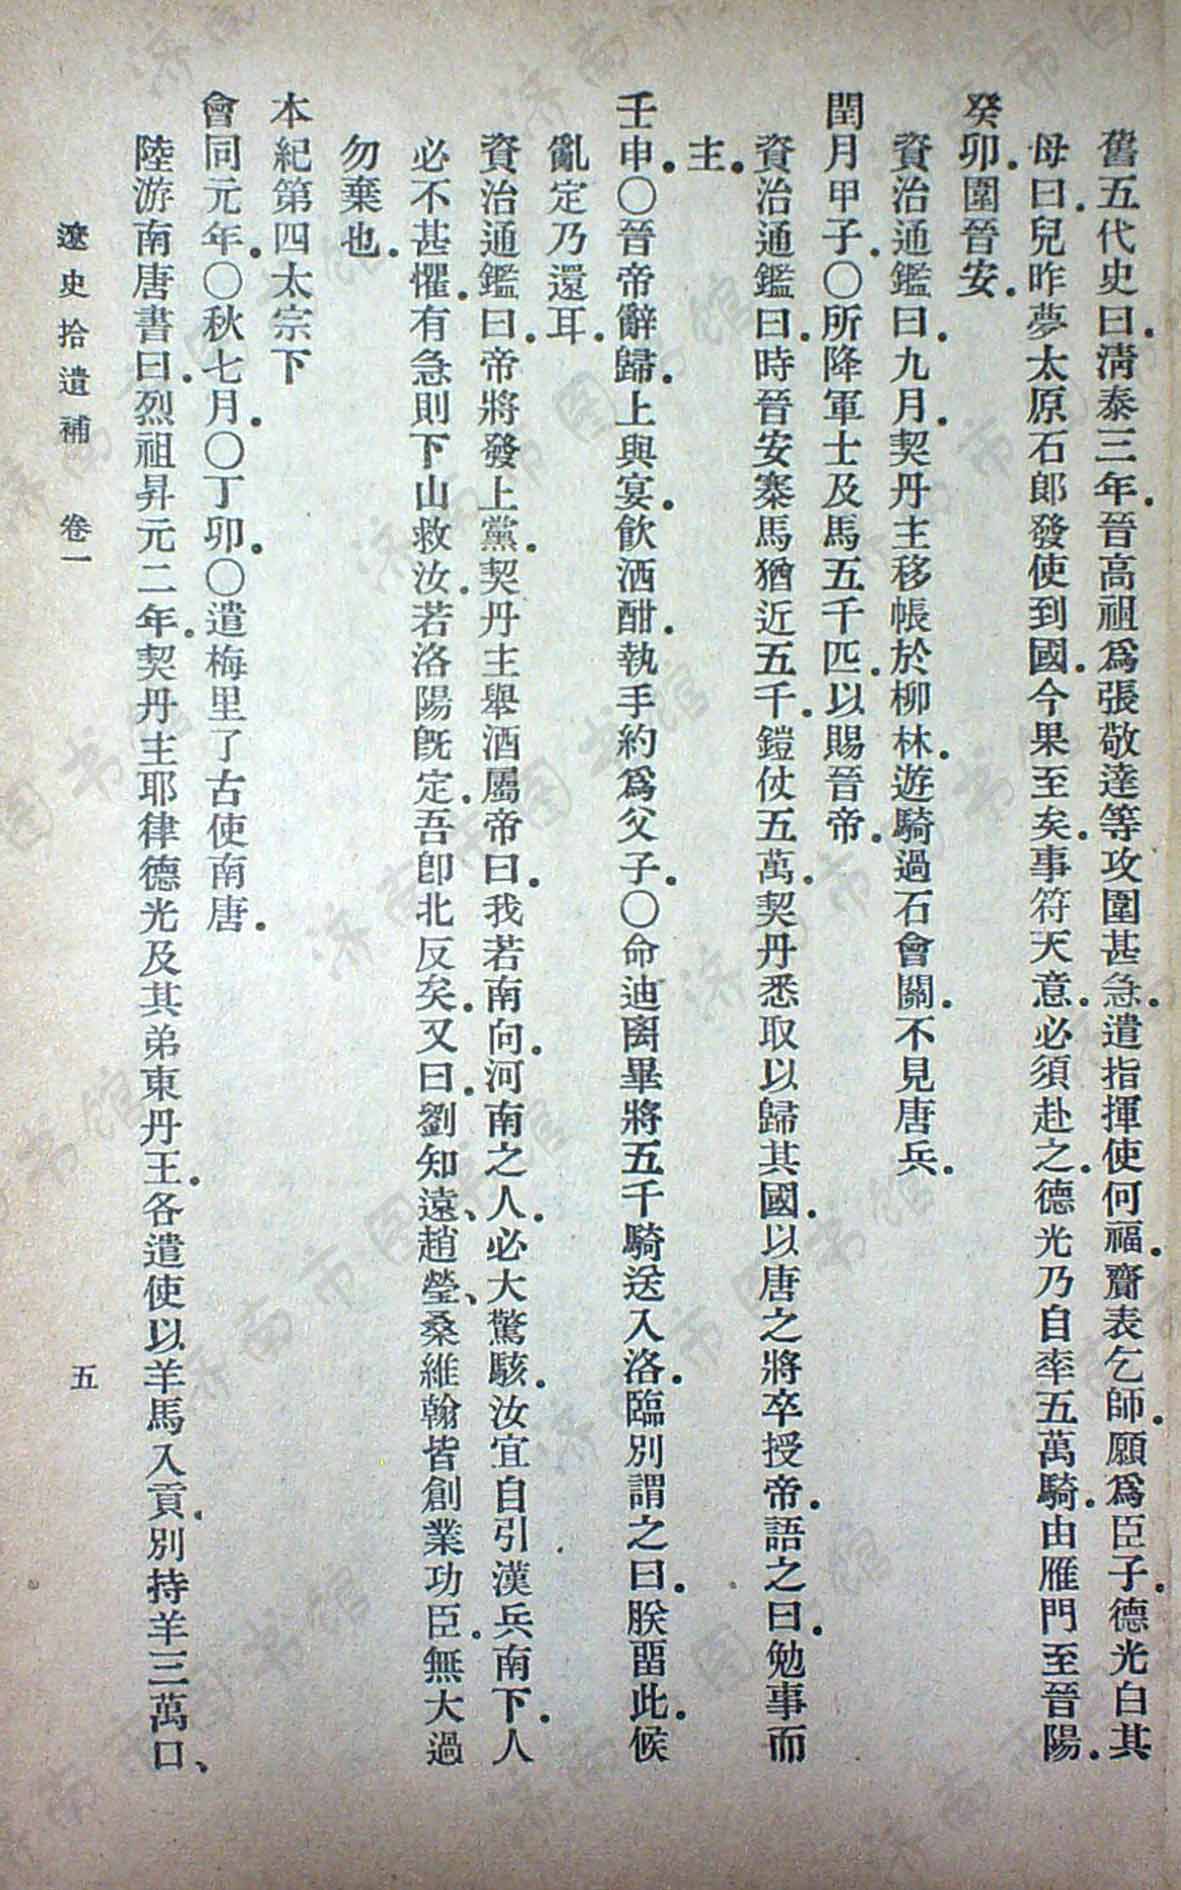 舊五代史曰.淸泰三年.晉高祖爲張敬達等攻圍甚急.遣指揮使何福.齎表乞師.願爲臣子.德光白其
母曰.兒昨夢太原石郎發使到國.今果至矣.事符天意.必須赴之.德光乃自率五萬騎.由雁門至晉陽.
癸卯.圍晉安.
資治通鑑曰.九月.契丹主移帳於柳林.遊騎過石會關.不見唐兵.
閏月甲子.〇所降軍士及馬五千匹.以賜晉帝.
資治通鑑曰.時晉安寨馬猶近五千.鎧仗五萬.契丹悉取以歸其國.以唐之將卒授帝.語之曰.勉事而
主.
壬申.〇晉帝辭歸.上與宴.飮酒酣.執手約爲父子.〇命迪离畢將五千騎送入洛.臨別謂之曰.朕畱此.候
亂定乃還耳.
資治通鑑曰.帝將發上黨.契丹主舉酒屬帝曰.我若南向.河南之人.必大驚駭.汝宜自引漢兵南下.人
必不甚懼.有急則下山救汝.若洛陽旣定.吾卽北反矣.又曰.劉知遠、趙瑩、桑維翰皆創業功臣.無大過
勿棄也.
本紀第四太宗下
會同元年.〇秋七月.〇丁卯.〇遣梅里了古使南唐.
陸游南唐書曰.烈祖昇元二年.契丹主耶律德光及其弟東丹王.各遣使以羊馬入貢.別持羊三萬口、
遼史拾遺補 卷一 五
济南市图书馆